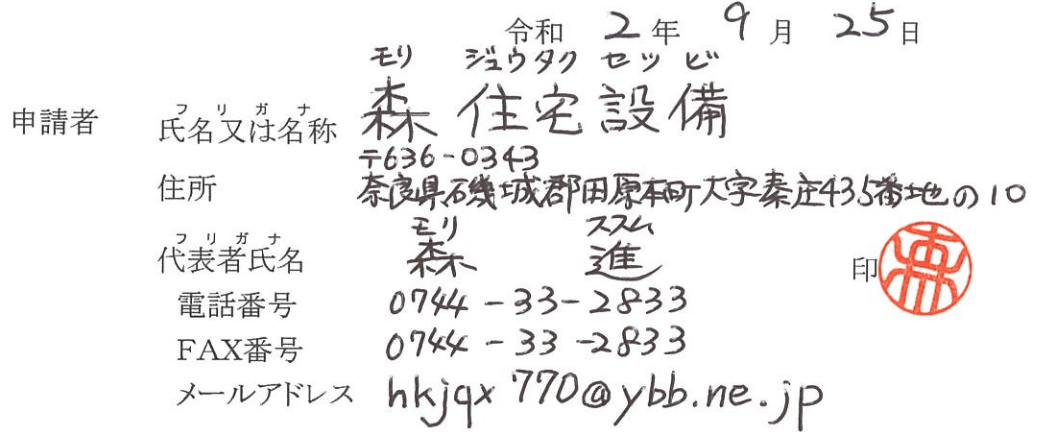 令和 2年 9月 25日
モリ ジュウタク セツビ
フリガナ
申請者 氏名又は名称 森住宅設備
〒636-0343
住所 奈良県磯城郡田原本町大字秦庄435番地の10
フリガナ モリ ススム
代表者氏名 森 進 印
電話番号 0744-33-2833
FAX番号 0744-33-2833
メールアドレス hkjqx770@ybb.ne.jp